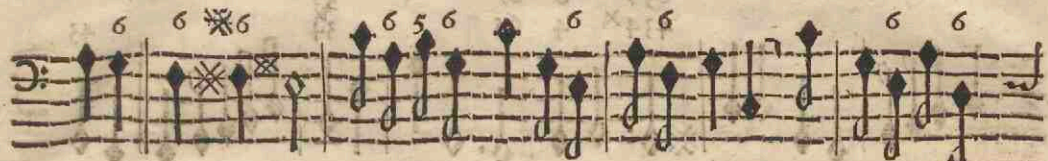 6 6 6 6 5 6 6 6 6 6